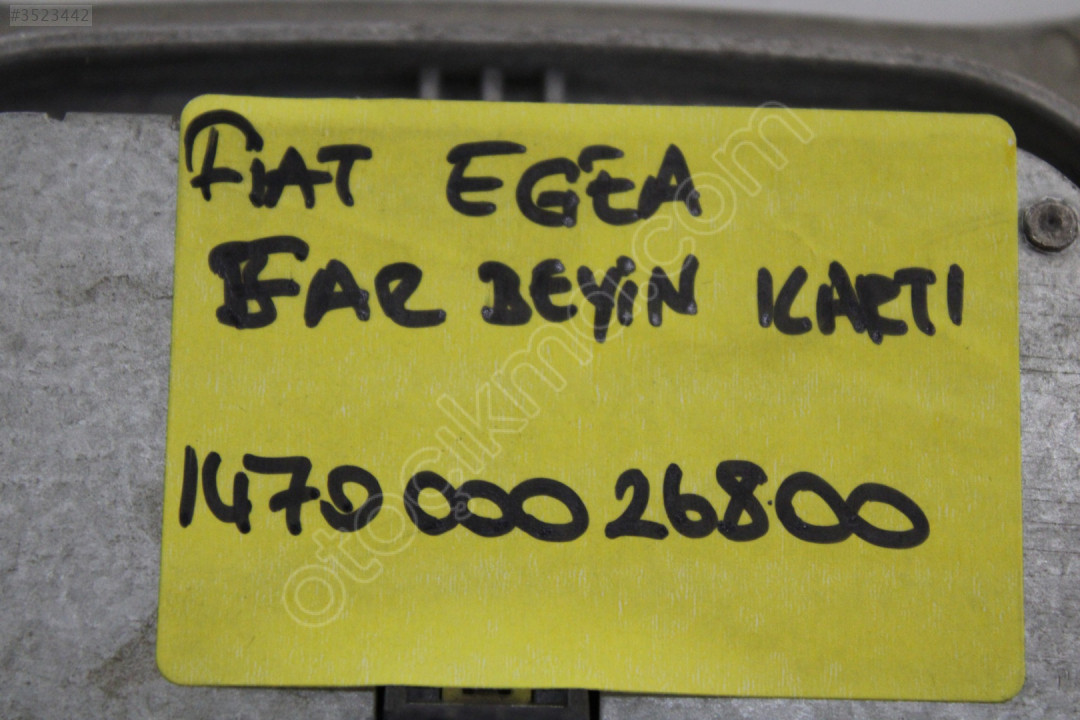 #3523442
FIAT EGEA
FAR BEYİN KARTI
1470 000 26800
otocikma.com